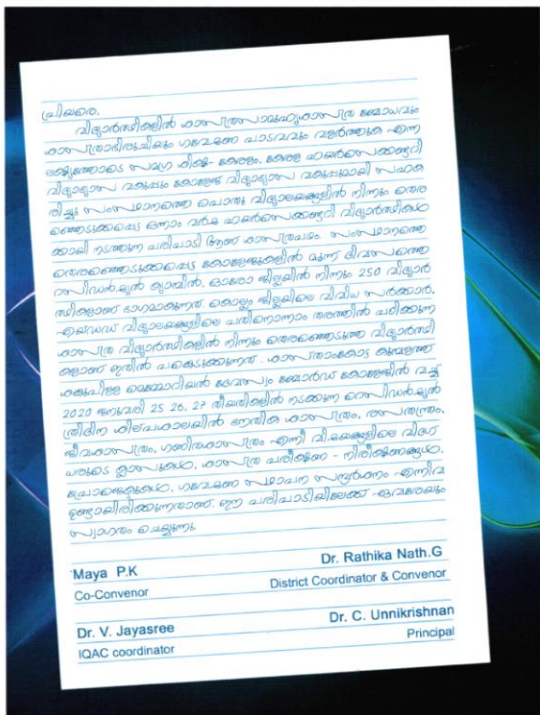 പ്രിയരെ,
വിദ്യാർത്ഥികളിൽ ശാസ്ത്രസാമൂഹ്യശാസ്ത്ര ബോധവും
ശാസ്ത്രാഭിരുചിയും ഗവേഷണ പാടവവും വളർത്തുക എന്ന
ലക്ഷ്യത്തോടെ സമഗ്ര ശിക്ഷ കേരളം, കേരള ഹയർസെക്കണ്ടറി
വിദ്യാഭ്യാസ വകുപ്പും കോളേജ് വിദ്യാഭ്യാസ വകുപ്പുമായി സഹക
രിച്ചു സംസ്ഥാനത്തെ പൊതു വിദ്യാലയങ്ങളിൽ നിന്നും തെര
ഞ്ഞെടുക്കപ്പെട്ട ഒന്നാം വർഷ ഹയർസെക്കണ്ടറി വിദ്യാർത്ഥികൾ
ക്കായി നടത്തുന്ന പരിപാടി ആണ് ശാസ്ത്രപഥം. സംസ്ഥാനത്തെ
തെരഞ്ഞെടുക്കപ്പെട്ട കോളേജുകളിൽ മൂന്ന് ദിവസത്തെ
റസിഡൻഷ്യൽ ക്യാമ്പിൽ, ഓരോ ജില്ലയിൽ നിന്നും 250 വിദ്യാർ
ത്ഥികളാണ് ഭാഗമാകുന്നത് കൊല്ലം ജില്ലയിലെ വിവിധ സർക്കാർ,
എയ്ഡഡ് വിദ്യാലയങ്ങളിലെ പതിനൊന്നാം തരത്തിൽ പഠിക്കുന്ന
ശാസ്ത്ര വിദ്യാർത്ഥികളിൽ നിന്നും തെരഞ്ഞെടുത്ത വിദ്യാർത്ഥി
കളാണ് ഇതിൽ പങ്കെടുക്കുന്നത് . ശാസ്താംകോട്ട കുമ്പളത്ത്
ശങ്കുപിള്ള മെമ്മോറിയൽ ദേവസ്വം ബോർഡ് കോളേജിൽ വച്ച്
2020 ജനുവരി 25 26, 27 തീയതികളിൽ നടക്കുന്ന റെസിഡർഷ്യൽ
ത്രിദിന ശില്പശാലയിൽ ഭൗതിക ശാസ്ത്രം, രസതന്ത്രം,
ജീവശാസ്ത്രം, ഗണിതശാസ്ത്രം എന്നീ വിഷയങ്ങളിലെ വിദഗ്
ധരുടെ ക്ലാസുകൾ, ശാസ്ത്ര പരീക്ഷണ - നിരീക്ഷണങ്ങൾ,
പ്രോജെക്ടുകൾ, ഗവേഷണ സ്ഥാപന സന്ദർശനം എന്നിവ
ഉണ്ടായിരിക്കുന്നതാണ്. ഈ പരിപാടിയിലേക്ക് ഏവരേയും
സ്വാഗതം ചെയ്യുന്നു
Maya P.K Dr. Rathika Nath.G
Co-Convenor District Coordinator & Convenor
Dr. V. Jayasree Dr. C. Unnikrishnan
IQAC coordinator Principal